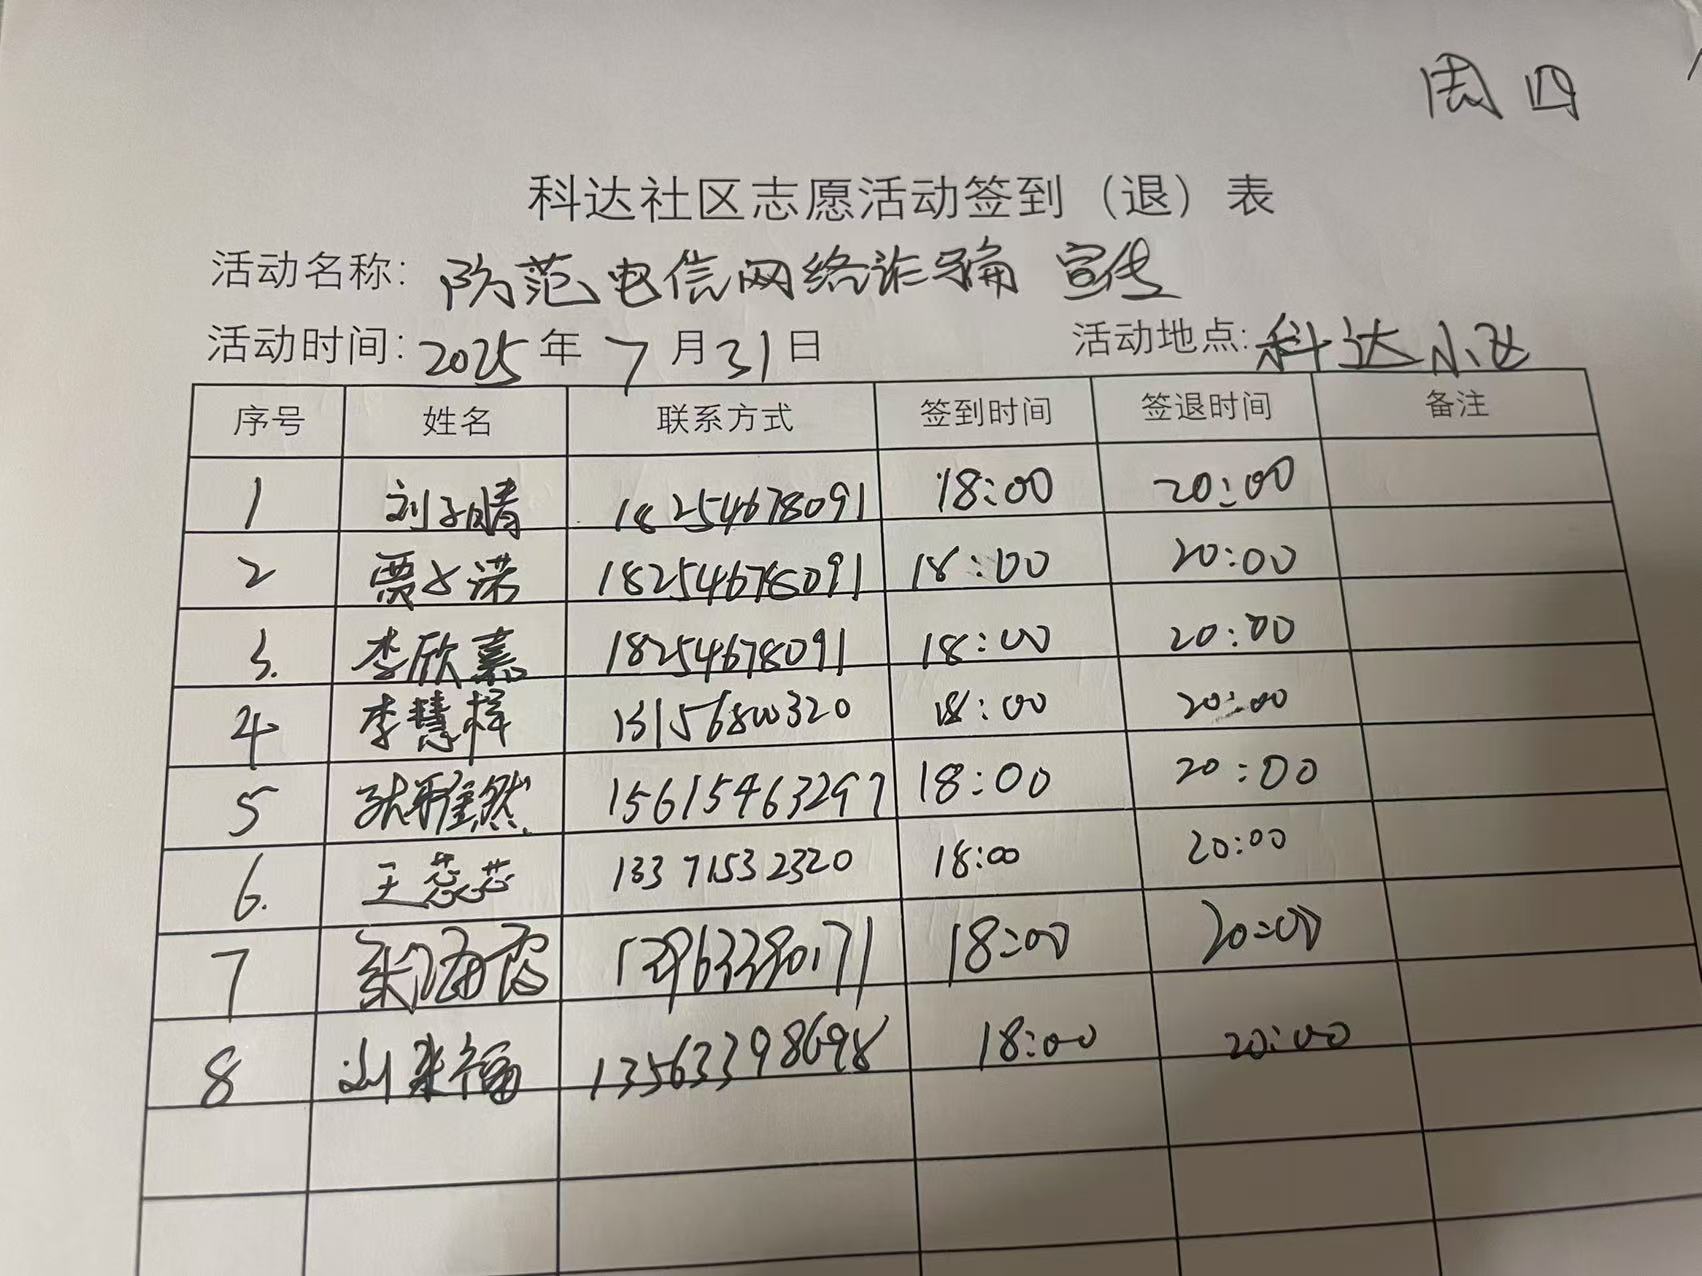 周四
科达社区志愿活动签到（退）表
活动名称：防范电信网络诈骗 宣传
活动时间：2025年7月31日 活动地点：科达小区
序号 姓名 联系方式 签到时间 签退时间 备注
1 刘子晴 18254678091 18:00 20:00
2 贾文诺 18254678091 18:00 20:00
3. 李欣熹 18254678091 18:00 20:00
4 李慧梓 13156800320 18:00 20:00
5 张雅然 15615463297 18:00 20:00
6. 王蕊芯 13371532320 18:00 20:00
7 18:00 20:00
8 刘来福 13563398698 18:00 20:00